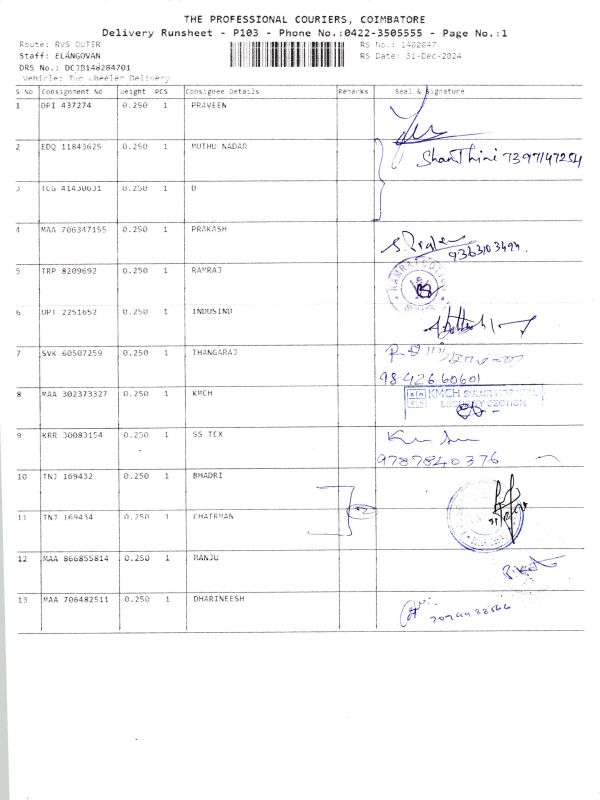 THE PROFESSIONAL COURIERS, COIMBATORE
Delivery Runsheet - P103 - Phone No.:0422-3505555 - Page No.:1
Route: RVS OUTER
RS No.: 1482847
Staff: ELANGOVAN
RS Date: 31-Dec-2024
DRS No.: DCJB148284701
Vehicle: Two Wheeler Delivery
S.No Consignment No Weight PCS Consignee Details Remarks Seal & Signature
1 DPI 437274 0.250 1 PRAVEEN
2 EDQ 11843625 0.250 1 MUTHU NADAR
ShanThini 7397147254
3 TCG 41430631 0.250 1 D
4 MAA 706347155 0.250 1 PRAKASH
9363103494.
5 TRP 8209692 0.250 1 RAMRAJ
6 UPT 2251652 0.250 1 INDUSIND
7 SVK 60507259 0.250 1 THANGARAJ
9842660601
8 MAA 302373327 0.250 1 KMCH
KMCH SULUR HOSPITAL
SECURITY SECTION
9 KRR 30083154 0.250 1 SS TEX
9787840376
10 TNJ 169432 0.250 1 BHADRI
11 TNJ 169434 0.250 1 CHAIRMAN
12 MAA 866855814 0.250 1 MANJU
13 MAA 706482511 0.250 1 DHARINEESH